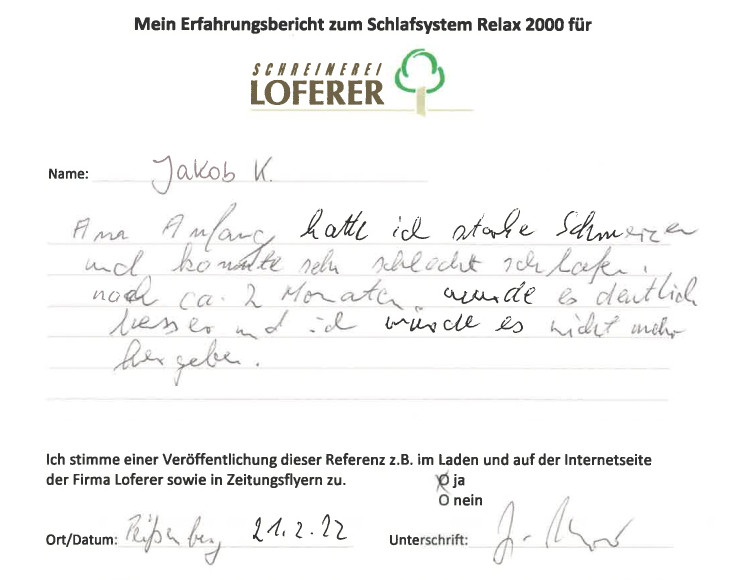 Mein Erfahrungsbericht zum Schlafsystem Relax 2000 für
SCHREINEREI
LOFERER
Name: Jakob K.
Am Anfang hatte ich starke Schmerzen
und konnte sehr schlecht schlafen.
nach ca. 2 Monaten wurde es deutlich
besser und ich würde es nicht mehr
hergeben.
Ich stimme einer Veröffentlichung dieser Referenz z.B. im Laden und auf der Internetseite
der Firma Loferer sowie in Zeitungsflyern zu. O ja
O nein
Ort/Datum: Peißenberg 21.2.22 Unterschrift: